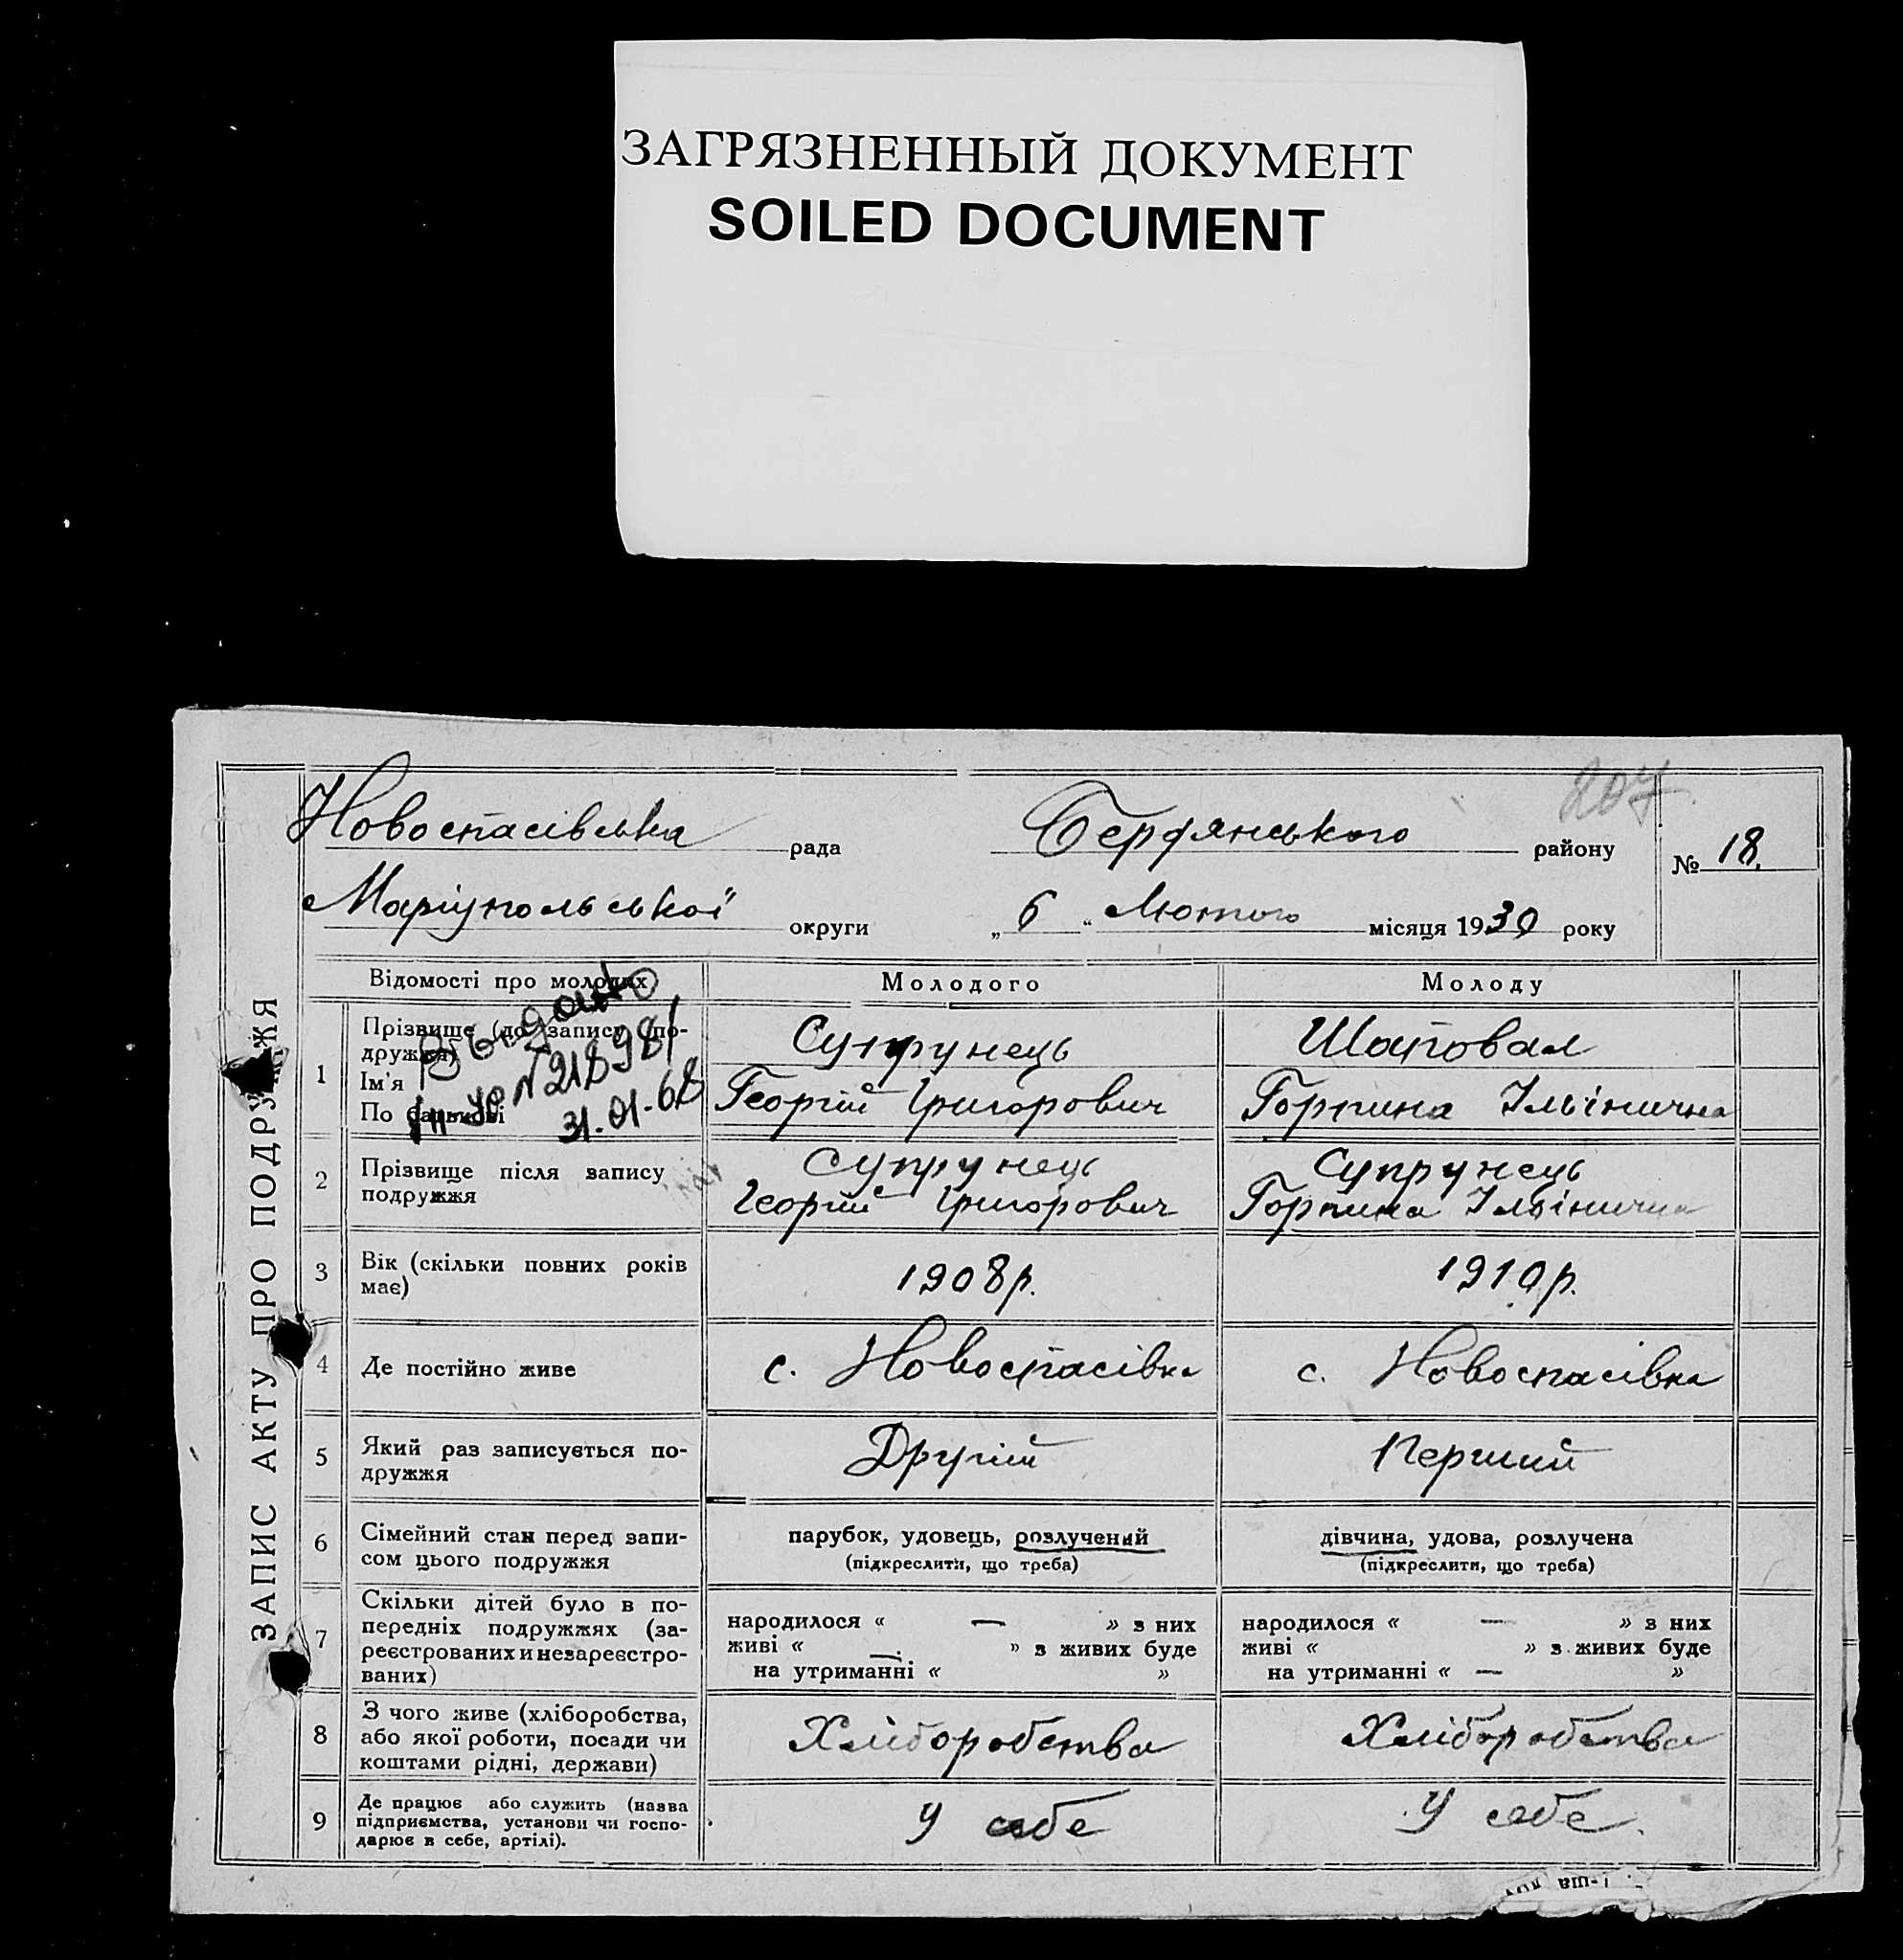 ЗАГРЯЗНЕННЫЙ ДОКУМЕНТ
SOILED DOCUMENT
207
Новоспасівська рада Бердянського району № 18.
Маріупольської округи „ 6 “ Лютого місяця 1930 року
ЗАПИС АКТУ ПРО ПОДРУЖЖЯ
Відомості про молодих Молодого Молоду
Выдано
№ 218981
31.01-68
1 Прізвище (до запису по-
дружжя)
Ім'я
По батькові
Супрунець
Георгій Григорович
Шаповал
Горпина Ільїнична
2 Прізвище після запису
подружжя
Супрунець
Георгій Григорович
Супрунець
Горпина Ільїнична
3 Вік (скільки повних років
має)
1908 р.
1910 р.
4 Де постійно живе
с. Новоспасівка
с. Новоспасівка
5 Який раз записується по-
дружжя
Другій
Перший
6 Сімейний стан перед запи-
сом цього подружжя
парубок, удовець, розлучений
(підкреслити, що треба)
дівчина, удова, розлучена
(підкреслити, що треба)
7 Скільки дітей було в по-
передніх подружжях (за-
реєстрованих и незареєстро-
ваних)
народилося « — » з них
живі « — » з живих буде
на утриманні « »
народилося « — » з них
живі « » з живих буде
на утриманні « — »
8 З чого живе (хліборобства,
або якої роботи, посади чи
коштами рідні, держави)
Хліборобства
Хліборобства
9 Де працює або служить (назва
підприємства, установи чи госпо-
дарює в себе, артілі).
У себе
У себе.